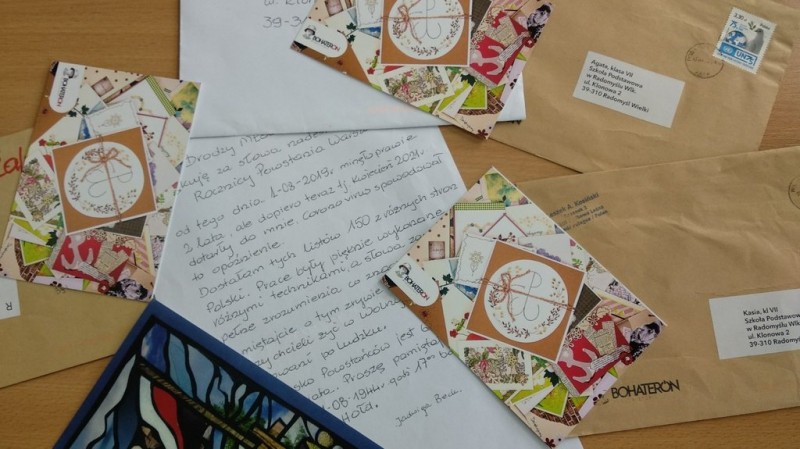 ul. k
39-3
BOHATERON
Agata, klasa VII
Szkoła Podstawowa
w Radomyślu Wlk.
ul. Klonowa 2
39-310 Radomyśl Wielki
3,30 zł
75
UN75
BOHATERON
Drodzy Mło
kuję za słowa nade
Rocznicy Powstania Warsz
od tego dnia 1-08-2019r minęło prawie
2 lata, ale dopiero teraz tj kwiecień 2021r
dotarły do mnie. Corono virus spowodował
to opóźnienie.
Dostałam tych listów 150 z różnych stron
Polski. Prace były pięknie wykonane
różnymi technikami, a słowa za
pełne zrozumienia co zna
miętajcie o tym zrywie
chcieli żyć w Wolne
ować po ludzku.
sko Powstańców jest
ata. Proszę pamięta
-08-1944r godz 17
Hołd.
Jadwiga
BOHATERON
Kasia, kl VII
Szkoła Podstawowa
w Radomyślu Wlk.
ul. Klonowa 2
39-310 Radomyśl W
BOHATERON